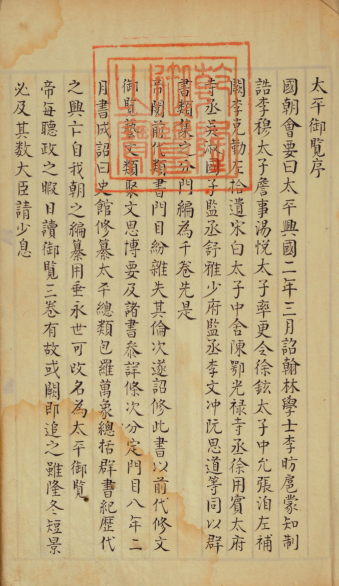 太平御覽序
國朝會要曰太平興國二年三月詔翰林學士李昉扈蒙知制
誥李穆太子詹事湯悅太子率更令徐鉉太子中允張洎左補
闕李克勤左拾遺宋白太子中舍陳鄂光祿寺丞徐用賓太府
寺丞吳淑國子監丞舒雅少府監丞李文沖阮思道等同以群
書類集之分門編為千卷先是
帝閱前代類書門目紛雜失其倫次遂詔修此書以前代修文
御覽藝文類聚文思博要及諸書參詳條次分定門目八年二
月書成詔曰史館修纂太平總類包羅萬象總括群書紀歷代
之興亡自我朝之編纂用垂永世可改名為太平御覽
帝每聽政之暇日讀御覽三卷有故或闕即追之雖隆冬短景
必及其數大臣請少息